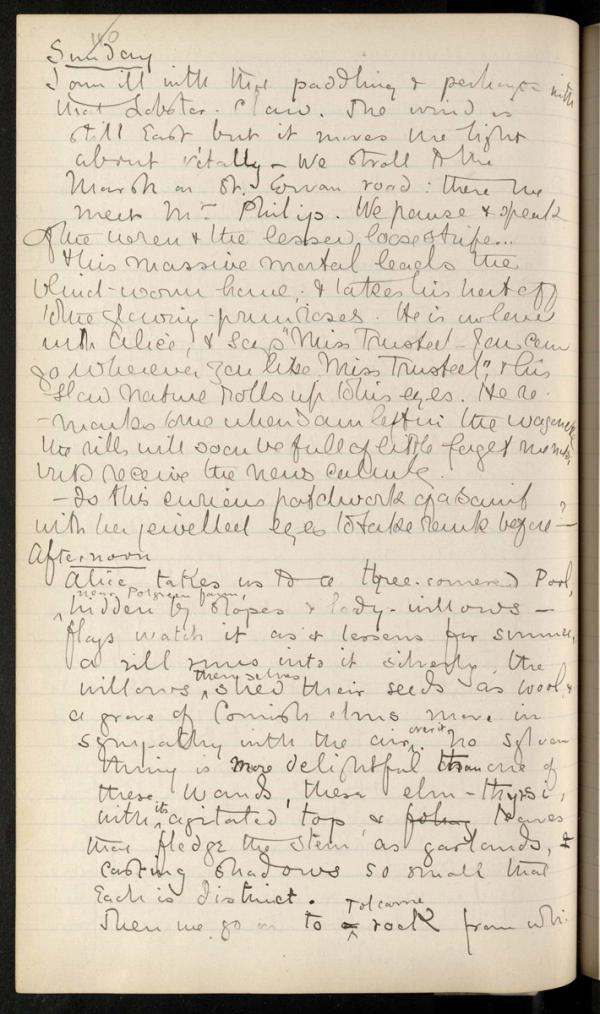 Sunday
I am ill with that paddling & perhaps with
that Lobster-Claw. The wind is
still East but it moves the light
about vitally – We stroll to the
Marsh on St. Ervan road: there we
meet Mr Philip. We pause & speak
of the wren & the lesser loosestrife...
& this massive mortal leads the
blind-worm home, & takes his hat off
to the evening-primroses. He is in love
with Alice, & says "Miss Trusted – you can
go wherever you like Miss Trusted", & his
slow nature rolls up to his eyes. He re-
-marks to me when I am left in the
the rills will soon be full of little forget me nots.
I receive the news calmly.
– Is this curious patchwork of a saint,
with her jewelled eyes to take rank before –
Afternoon
Alice takes us to a three-cornered Pool,
near Polgreen farm,
hidden by slopes & lady-willows –
flags watch it as it lessens for summer,
a rill runs into it silverly, the
willows themselves shed their seeds as wool, &
a grove of Cornish elms move in
sympathy with the air over it. No sylvan
thing is more delightful than one of
these wands, these elm-thyrsi,
with its agitated top & leaves
that fledge the stem as garlands, &
casting shadows so small that
each is distinct.
Then we go on to Tolcarne rock from whi